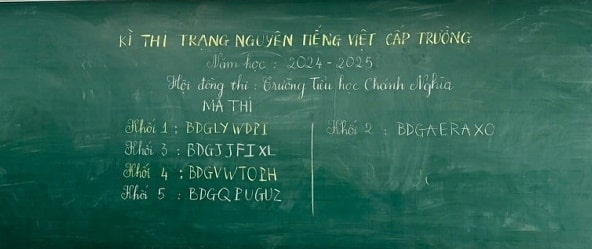 KÌ THI TRẠNG NGUYÊN TIẾNG VIỆT CẤP TRƯỜNG
Năm học : 2024 - 2025
Hội đồng thi : Trường Tiểu học Chánh Nghĩa
MÃ THI
Khối 1 : BDGLYWDPI
Khối 2 : BDGAERAXO
Khối 3 : BDGJJFIXL
Khối 4 : BDGVWTOPH
Khối 5 : BDGQPUGUZ